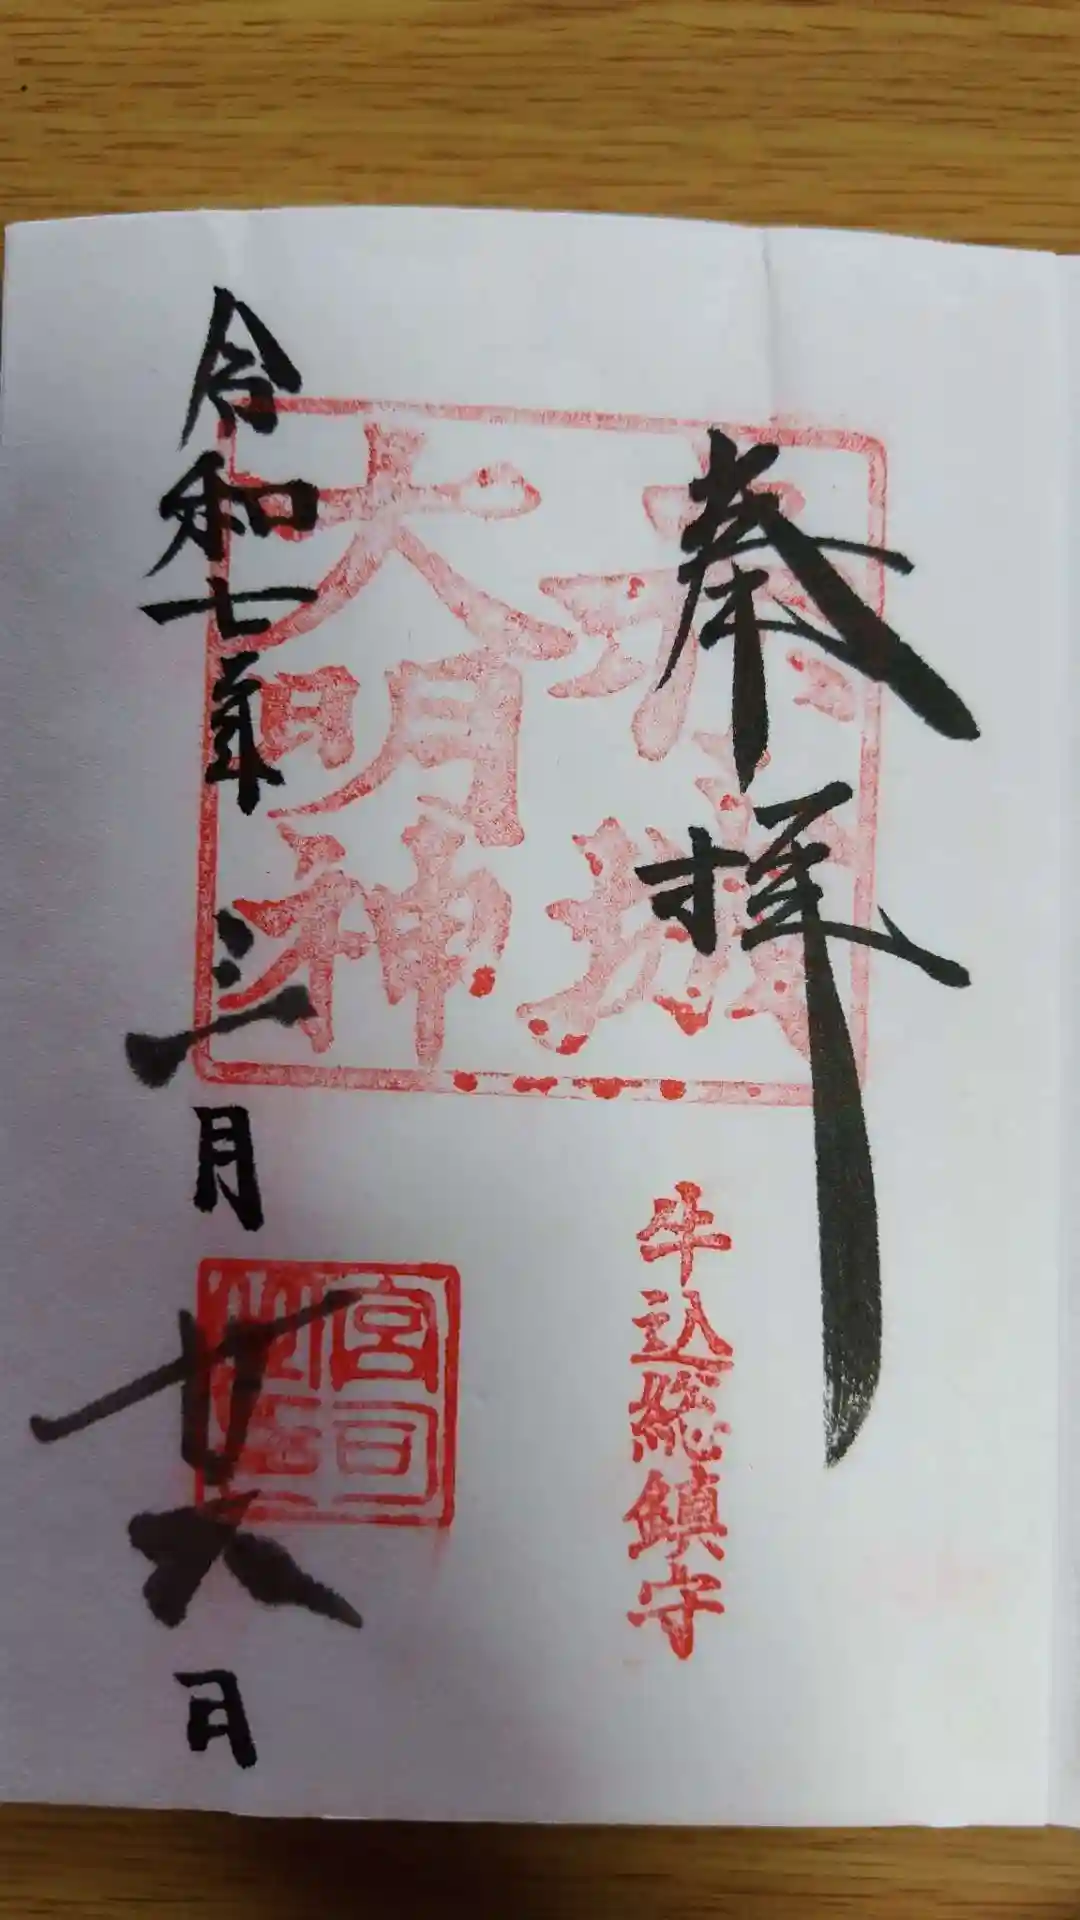 奉拝
赤城
大明神
牛込総鎮守
令和七年三月廿六日
宮司
之印